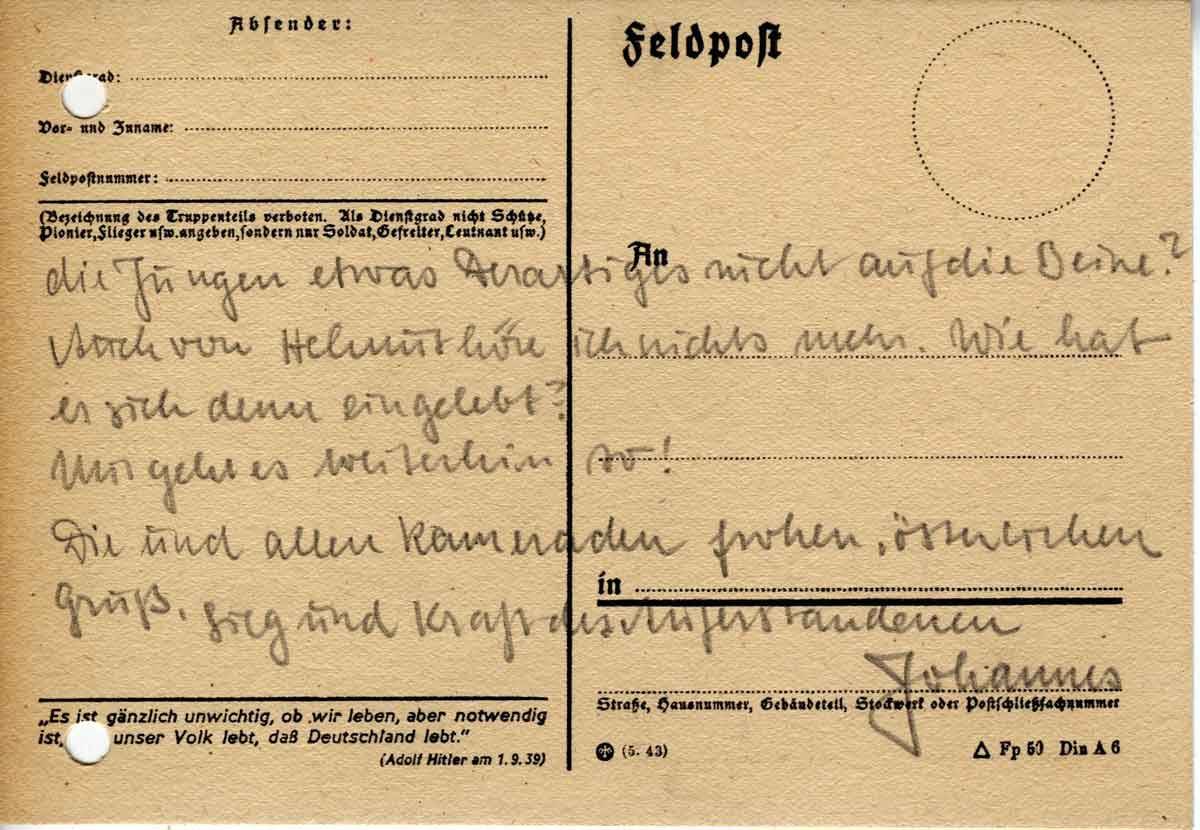 Absender:
Dienstgrad:
Vor- und Zuname:
Feldpostnummer:
(Bezeichnung des Truppenteils verboten. Als Dienstgrad nicht Schütze,
Pionier, Flieger usw. angeben, sondern nur Soldat, Gefreiter, Leutnant usw.)
Feldpost
An
die Jungen etwas Derartiges nicht auf die Beine?
Auch von Helmut höre ich nichts mehr. Wie hat
er sich denn eingelebt?
Mir geht es weiterhin so!
Die und allen Kameraden frohen, österlichen
Gruß. Sieg und Kraft des Auferstandenen
Johannes
in
Straße, Hausnummer, Gebäudeteil, Stockwerk oder Postschließfachnummer
„Es ist gänzlich unwichtig, ob wir leben, aber notwendig
ist, unser Volk lebt, daß Deutschland lebt."
(Adolf Hitler am 1.9.39)
(5. 43)
Fp 50 Din A 6